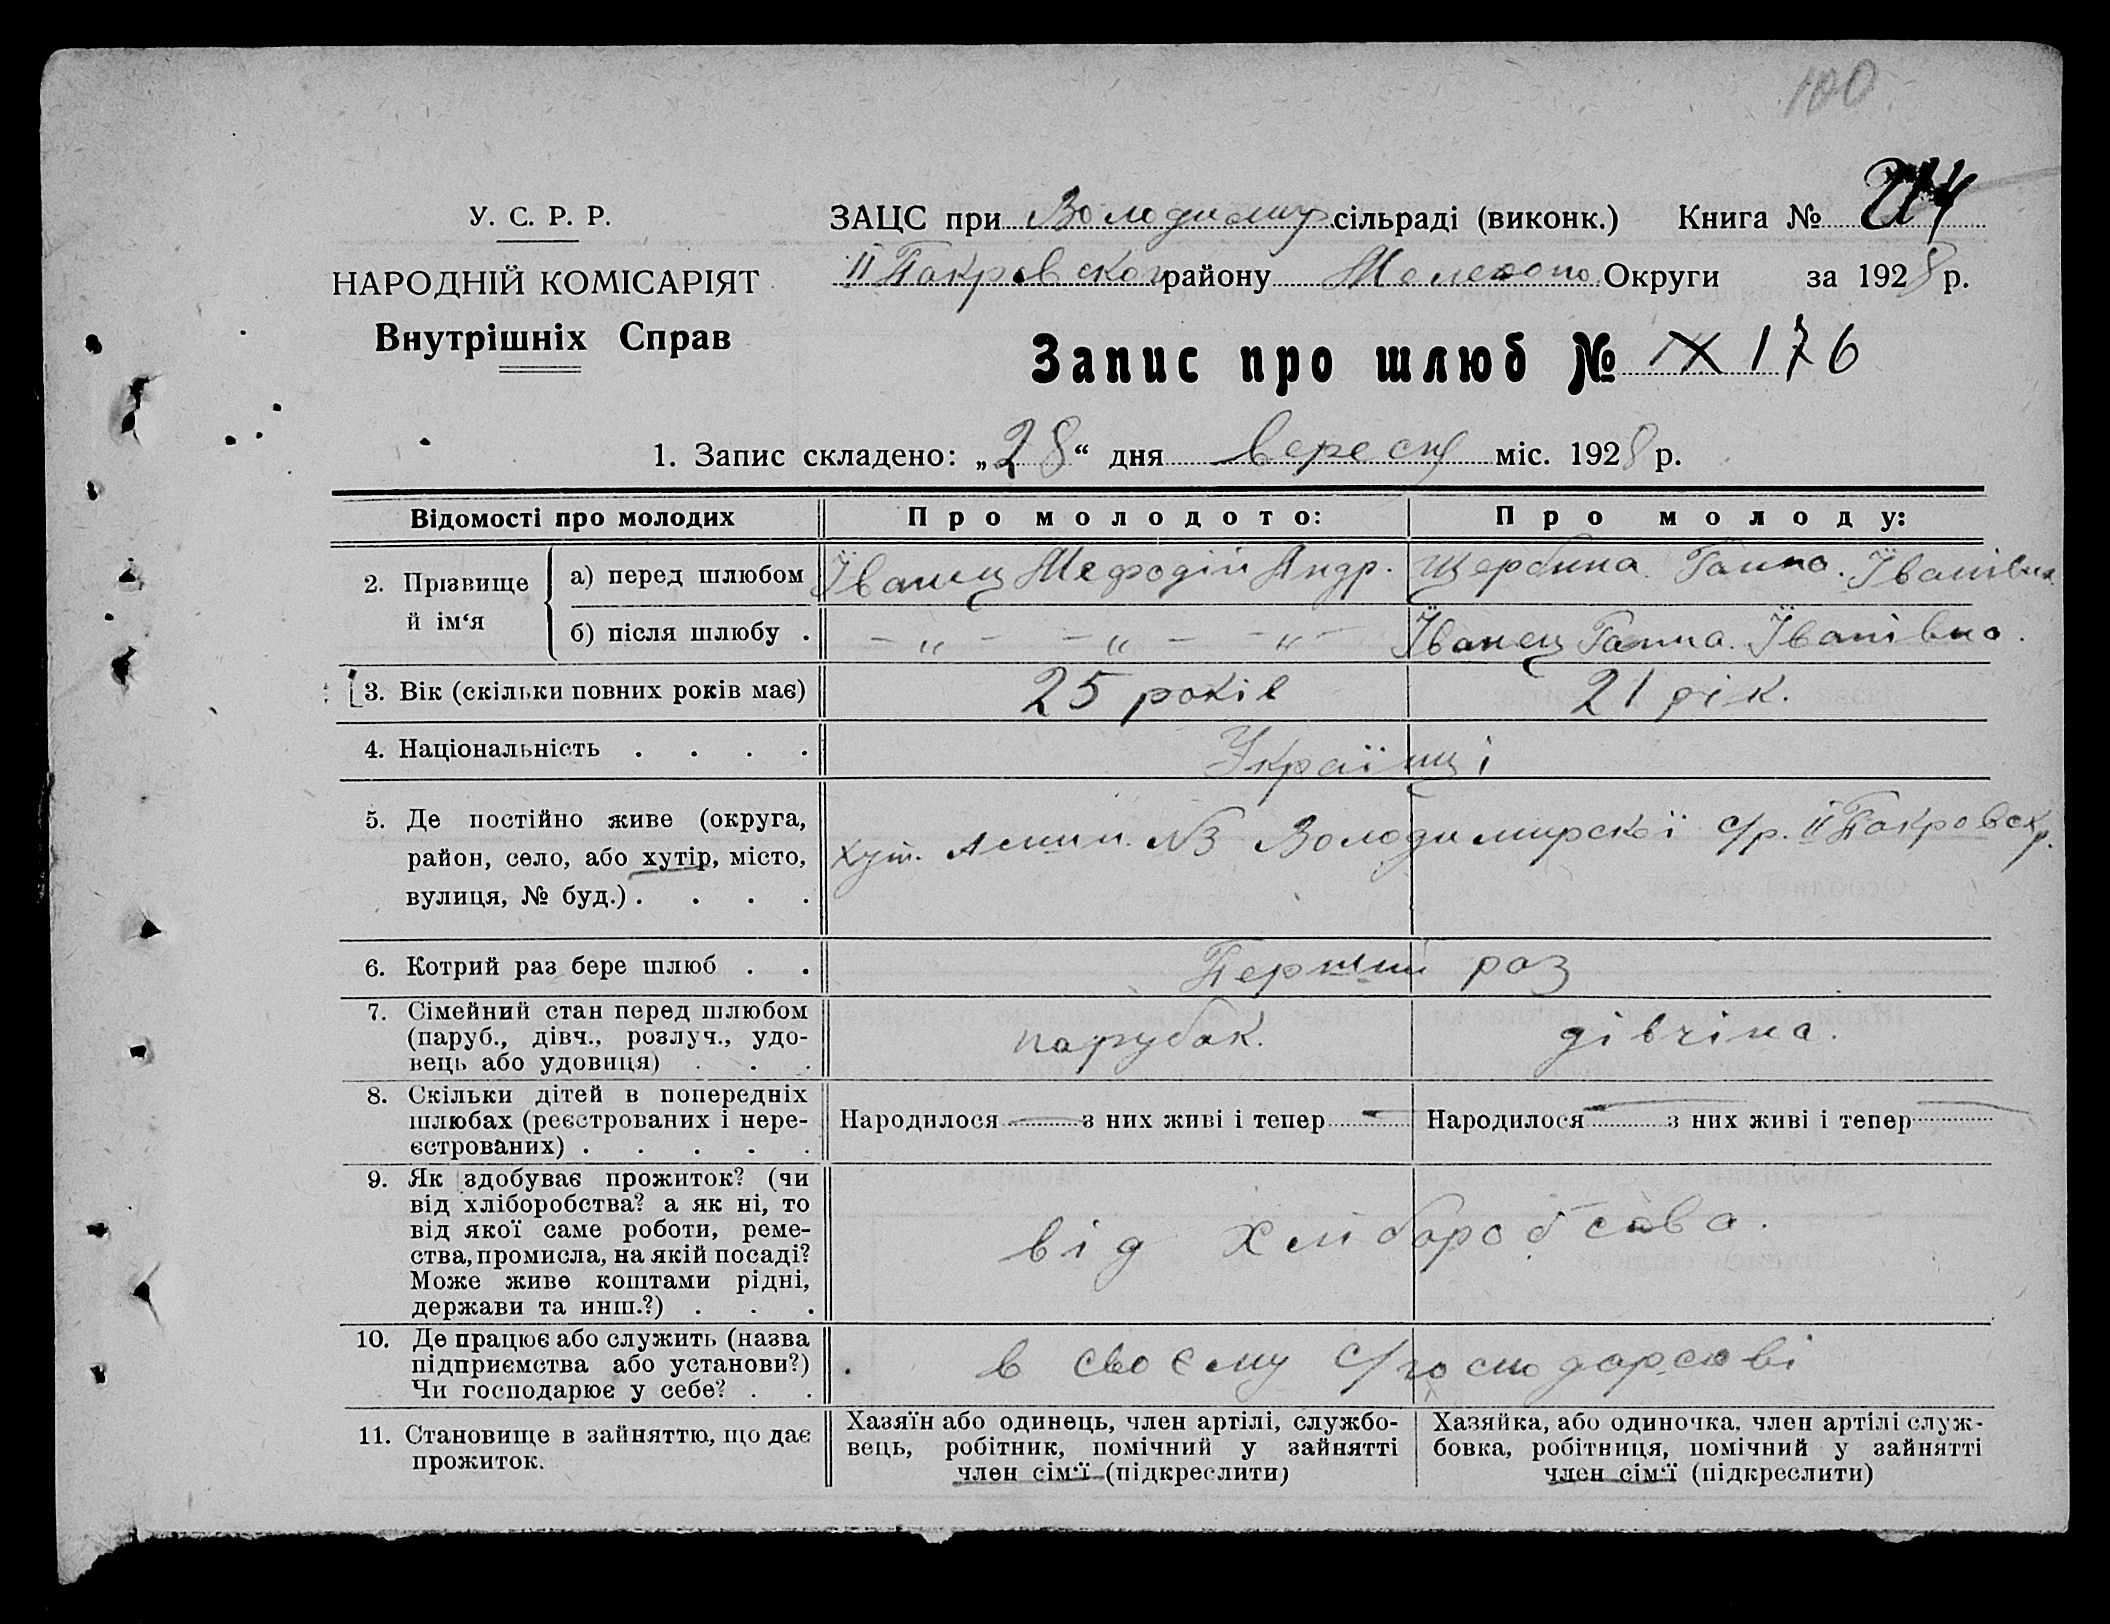 100
У. С. Р. Р.
НАРОДНІЙ КОМІСАРІЯТ
Внутрішніх Справ
ЗАЦС при Володимир сільраді (виконк.) Книга №
ІІ Покровског району Мелітопо Округи за 1928 р.
Запис про шлюб № 176
1. Запис складено: „28“ дня вересня міс. 1928 р.
Відомості про молодих Про молодого: Про молоду:
2. Прізвище й ім‘я
а) перед шлюбом Іванец Мефодій Андр. Щербина Ганна. Іванівна
б) після шлюбу . — „ — — „ — — „ — Іванец Ганна. Іванівна.
3. Вік (скільки повних років має) 25 років 21 рік.
4. Національність . . . . Українці
5. Де постійно живе (округа,
район, село, або хутір, місто,
вулиця, № буд.) . . . .
хут. №3 Володимирскої с/р. ІІ Покровск р.
6. Котрий раз бере шлюб . . Перший раз
7. Сімейний стан перед шлюбом
(паруб., дівч., розлуч., удо-
вець або удовиця) . . .
парубок. дівчіна.
8. Скільки дітей в попередніх
шлюбах (реєстрованих і нере-
єстрованих) . . . . .
Народилося — з них живі і тепер — Народилося — з них живі і тепер —
9. Як здобуває прожиток? (чи
від хліборобства? а як ні, то
від якої саме роботи, реме-
ства, промисла, на якій посаді?
Може живе коштами рідні,
держави та инш.?) . . .
від хліборобства.
10. Де працює або служить (назва
підприємства або установи?)
Чи господарює у себе? . .
в своєму с/господарстві
11. Становище в зайняттю, що дає
прожиток.
Хазяїн або одинець, член артілі, службо-
вець, робітник, помічний у зайнятті
член сім‘ї (підкреслити)
Хазяйка, або одиночка, член артілі служ-
бовка, робітниця, помічний у зайнятті
член сім‘ї (підкреслити)